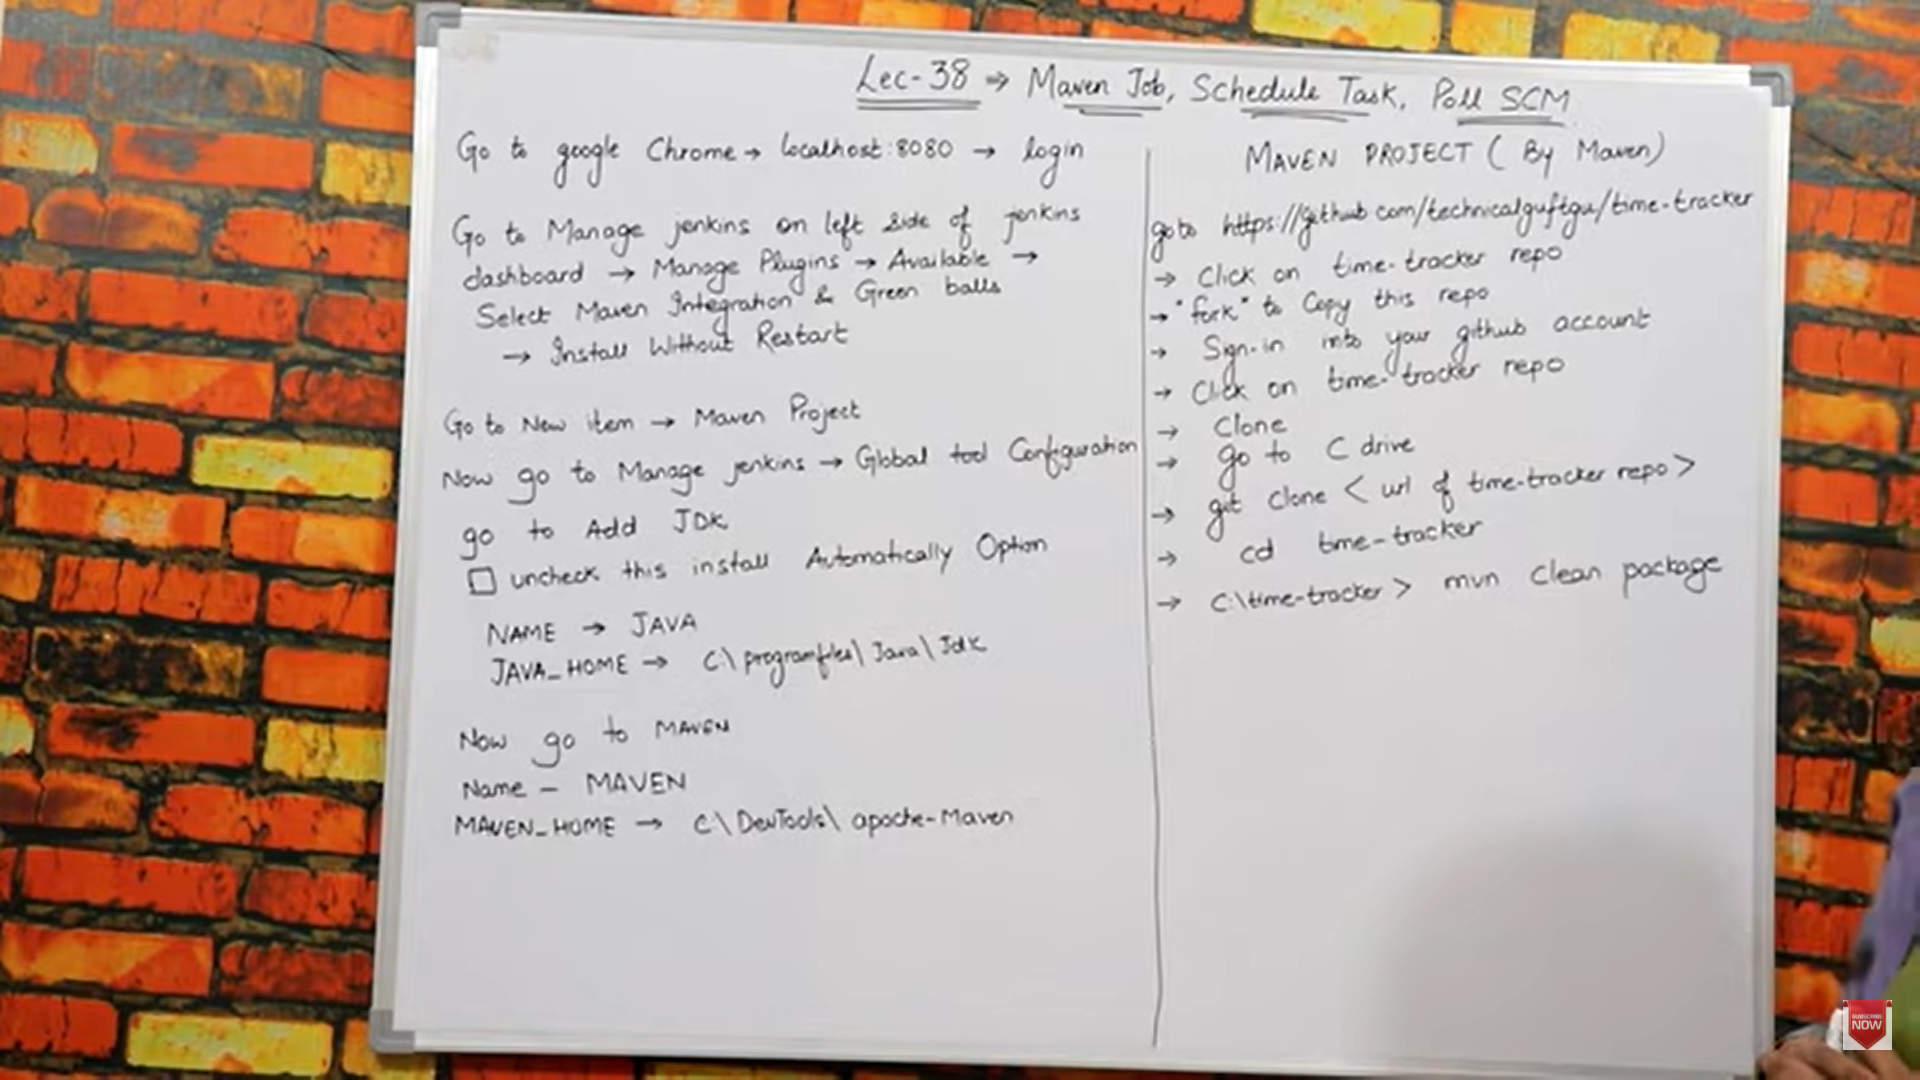 Lec-38 → Maven Job, Schedule Task, Poll SCM
Go to google Chrome → localhost:8080 → login
Go to Manage jenkins on left side of jenkins
dashboard → Manage Plugins → Available →
Select Maven Integration & Green balls
→ Install Without Restart
Go to New item → Maven Project
Now go to Manage jenkins → Global tool Configuration
go to Add JDK
☐ uncheck this install Automatically Option
NAME → JAVA
JAVA_HOME → C:\programfiles\Java\Jdk
Now go to MAVEN
Name - MAVEN
MAVEN_HOME → C\DevTools\apache-Maven
MAVEN PROJECT (By Maven)
goto https://github.com/technicalguftgu/time-tracker
→ Click on time-tracker repo
→ "fork" to Copy this repo
→ Sign-in into your github account
→ Click on time-tracker repo
→ Clone
→ go to C drive
→ git clone < url of time-tracker repo >
→ cd time-tracker
→ C:\time-tracker > mvn clean package
SUBSCRIBE
NOW